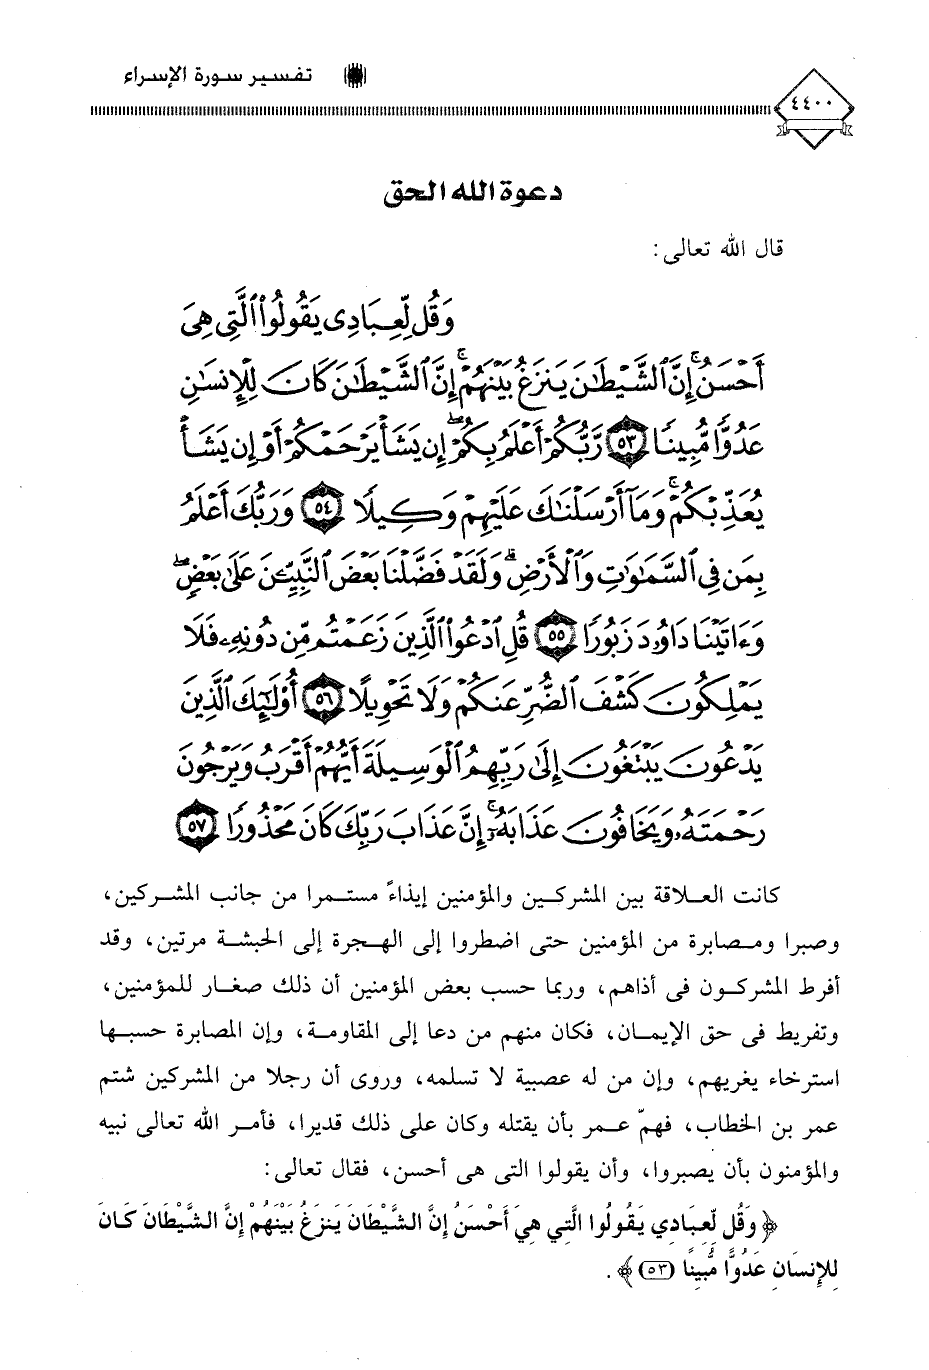 تفسير سورة الإسراء
٤٤٠٠
دعوة الله الحق
قال الله تعالى:
وَقُل لِّعِبَادِى يَقُولُوا۟ ٱلَّتِى هِىَ
أَحْسَنُ ۚ إِنَّ ٱلشَّيْطَٰنَ يَنزَغُ بَيْنَهُمْ ۚ إِنَّ ٱلشَّيْطَٰنَ كَانَ لِلْإِنسَٰنِ
عَدُوًّا مُّبِينًا ٥٣ رَّبُّكُمْ أَعْلَمُ بِكُمْ ۖ إِن يَشَأْ يَرْحَمْكُمْ أَوْ إِن يَشَأْ
يُعَذِّبْكُمْ ۚ وَمَآ أَرْسَلْنَٰكَ عَلَيْهِمْ وَكِيلًا ٥٤ وَرَبُّكَ أَعْلَمُ
بِمَن فِى ٱلسَّمَٰوَٰتِ وَٱلْأَرْضِ ۗ وَلَقَدْ فَضَّلْنَا بَعْضَ ٱلنَّبِيِّـۧنَ عَلَىٰ بَعْضٍ ۖ
وَءَاتَيْنَا دَاوُۥدَ زَبُورًا ٥٥ قُلِ ٱدْعُوا۟ ٱلَّذِينَ زَعَمْتُم مِّن دُونِهِۦ فَلَا
يَمْلِكُونَ كَشْفَ ٱلضُّرِّ عَنكُمْ وَلَا تَحْوِيلًا ٥٦ أُو۟لَٰٓئِكَ ٱلَّذِينَ
يَدْعُونَ يَبْتَغُونَ إِلَىٰ رَبِّهِمُ ٱلْوَسِيلَةَ أَيُّهُمْ أَقْرَبُ وَيَرْجُونَ
رَحْمَتَهُۥ وَيَخَافُونَ عَذَابَهُۥٓ ۚ إِنَّ عَذَابَ رَبِّكَ كَانَ مَحْذُورًا ٥٧
كانت العلاقة بين المشركين والمؤمنين إيذاءً مستمرا من جانب المشركين،
وصبرا ومصابرة من المؤمنين حتى اضطروا إلى الهجرة إلى الحبشة مرتين، وقد
أفرط المشركون فى أذاهم، وربما حسب بعض المؤمنين أن ذلك صغار للمؤمنين،
وتفريط فى حق الإيمان، فكان منهم من دعا إلى المقاومة، وإن المصابرة حسبها
استرخاء يغريهم، وإن من له عصبية لا تسلمه، وروى أن رجلا من المشركين شتم
عمر بن الخطاب، فهمّ عمر بأن يقتله وكان على ذلك قديرا، فأمر الله تعالى نبيه
والمؤمنون بأن يصبروا، وأن يقولوا التى هى أحسن، فقال تعالى:
﴿وَقُل لِّعِبَادِي يَقُولُوا الَّتِي هِيَ أَحْسَنُ إِنَّ الشَّيْطَانَ يَنزَغُ بَيْنَهُمْ إِنَّ الشَّيْطَانَ كَانَ
لِلإِنسَانِ عَدُوًّا مُّبِينًا (٥٣)﴾.